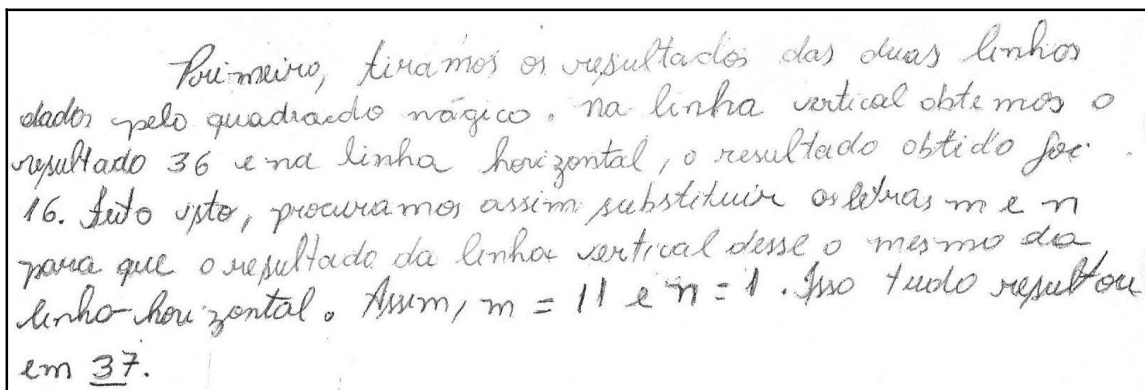 Primeiro, tiramos os resultados das duas linhas
dados pelo quadrado mágico. Na linha vertical obtemos o
resultado 36 e na linha horizontal, o resultado obtido foi
16. Feito isto, procuramos assim substituir as letras m e n
para que o resultado da linha vertical desse o mesmo da
linha horizontal. Assim, m = 11 e n = 1. Isso tudo resultou
em 37.